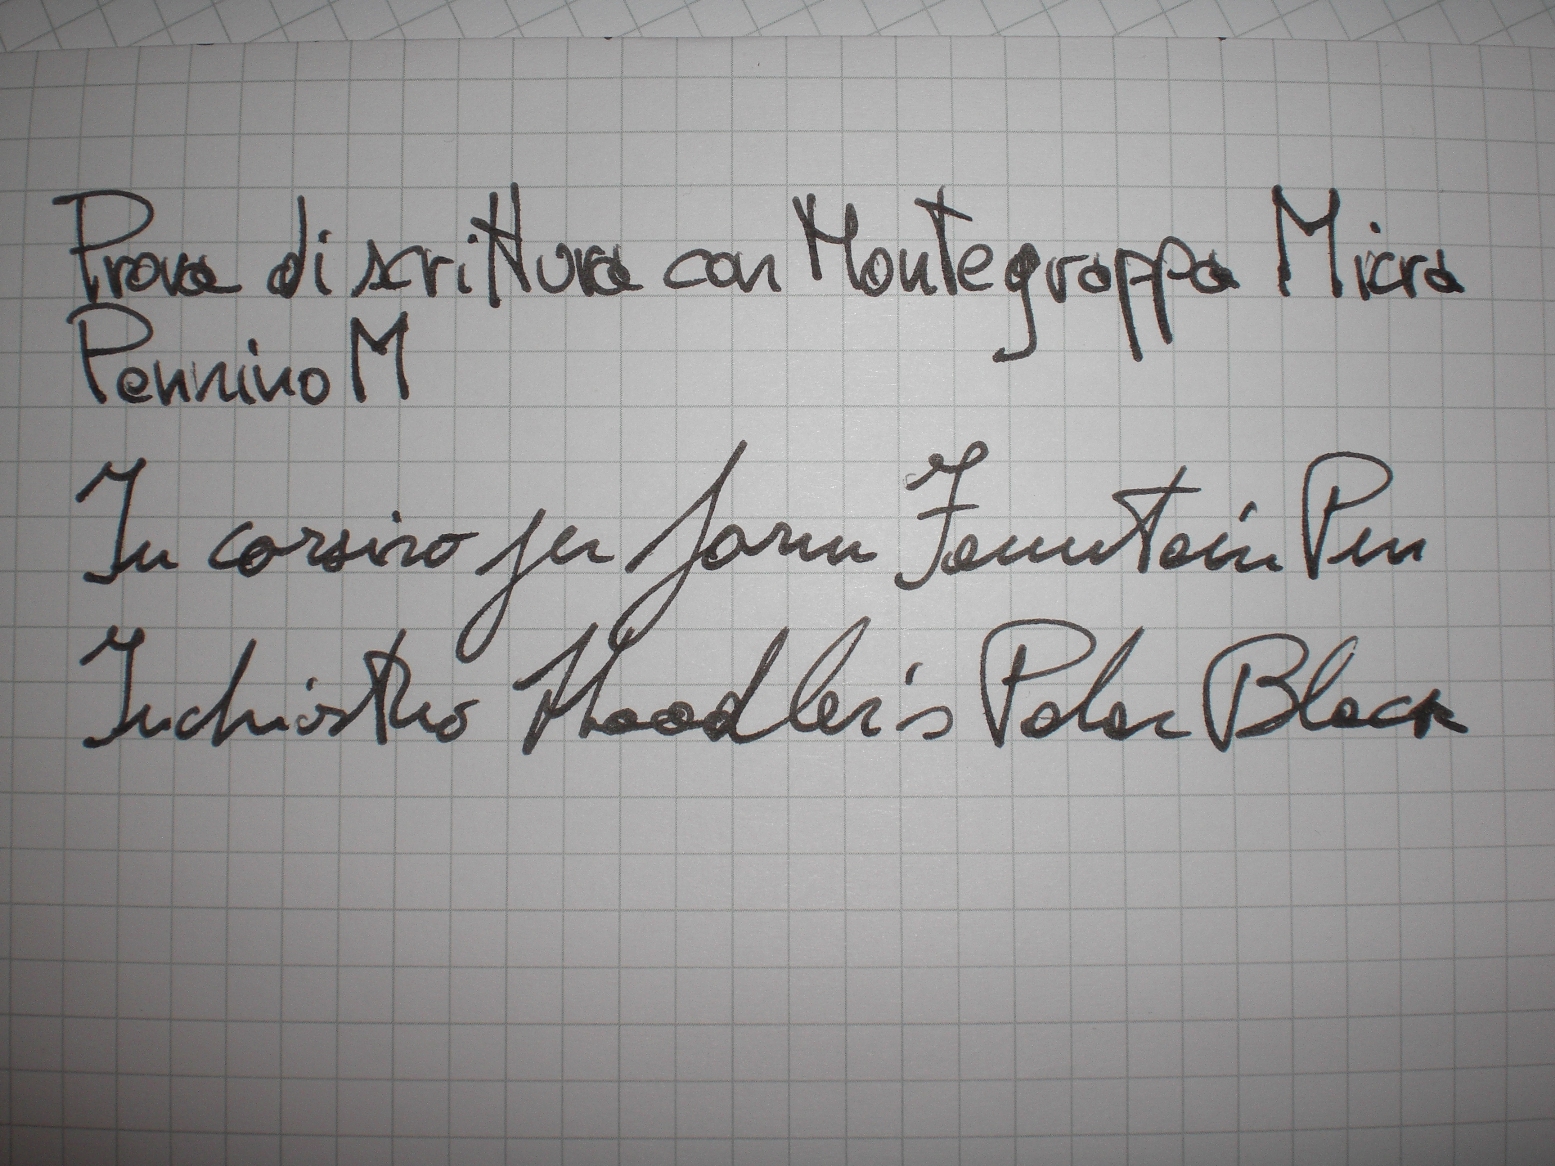 Prova di scrittura con Montegrappa Micra
Pennino M
In corsivo per forum Fountain Pen
Inchiostro Noodler's Polar Black